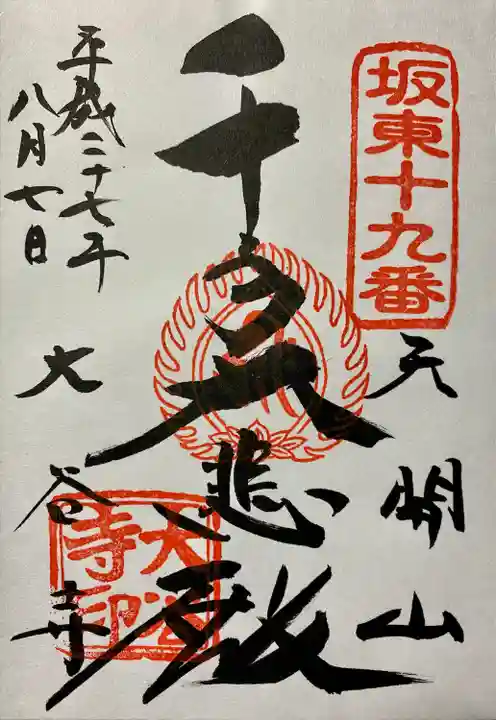 坂東十九番
天開山
千手大悲殿
平成二十七年
八月七日
大谷寺
大谷
寺印